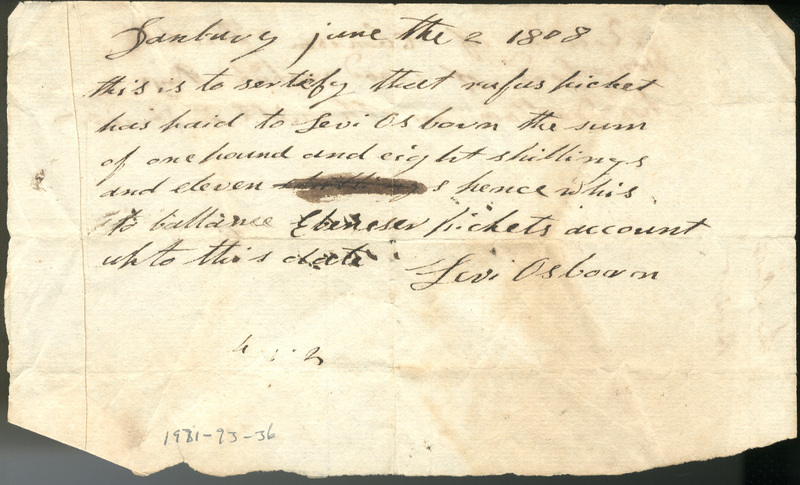 Danbury june the 2 1808
this is to sertefy that rufus picket
has paid to Levi Osborn the sum
of one pound and eight shillings
and eleven s pence whis
to ballance Ebeneser pickets account
upto this date
Levi Osborn
1981-93-36